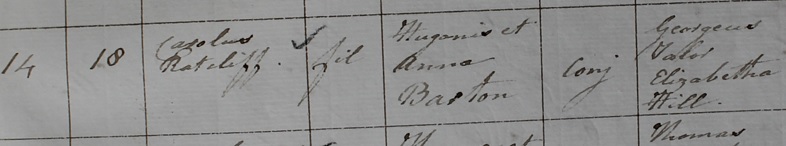 14 18 Carolus Ratcliff. fil Hugonis et Anna Barton conj Georgeus Valor Elizabetha Hill.
Thomas